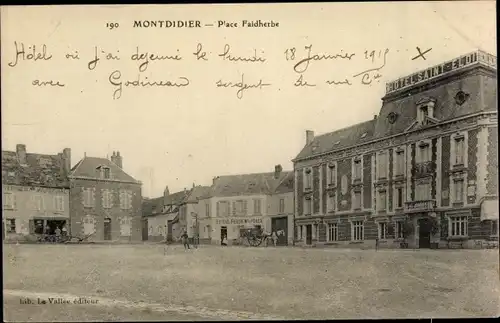 190 MONTDIDIER — Place Faidherbe
Hôtel où j'ai dejeuné le lundi 18 Janvier 1915 X
avec Godineau sergent de ma Cie
HOTEL SAINT-ELOI
Lib. Le Vallée éditeur